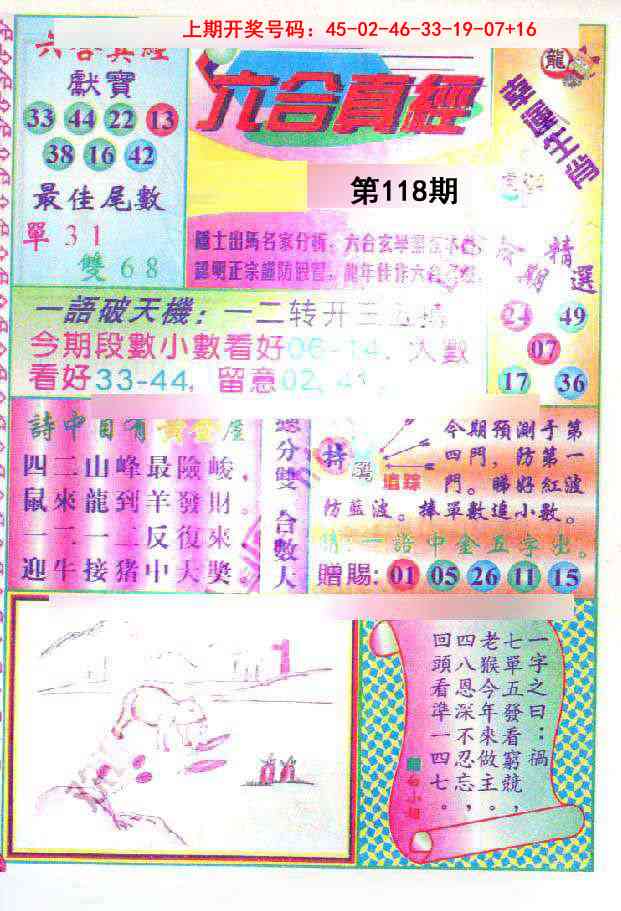 上期开奖号码：45-02-46-33-19-07+16
六合真經
獻寶
33 44 22 13
38 16 42
最佳尾數
單 3 1
雙 6 8
六合真經
龍
第118期
精
期 選
24 49
07
17 36
一語破天機：一二转开三五
今期段數小數看好06-14，大數
看好33-44，留意02，41，
詩中自有黃金屋
四二山峰最險峻，
鼠來龍到羊發財。
一二一二反復來
迎牛接猪中大獎。
總分雙 合數大
特碼
追踪
今期預測于第
四門，防第一
門。睇好紅波
防藍波。捧單數追小數。
一語中金五字出。
贈賜：01 05 26 11 15
1
一字之曰：禍
七單五發看窮競，
老猴今年來做主。
四八恩深不忍忘，
回頭看準一四七。